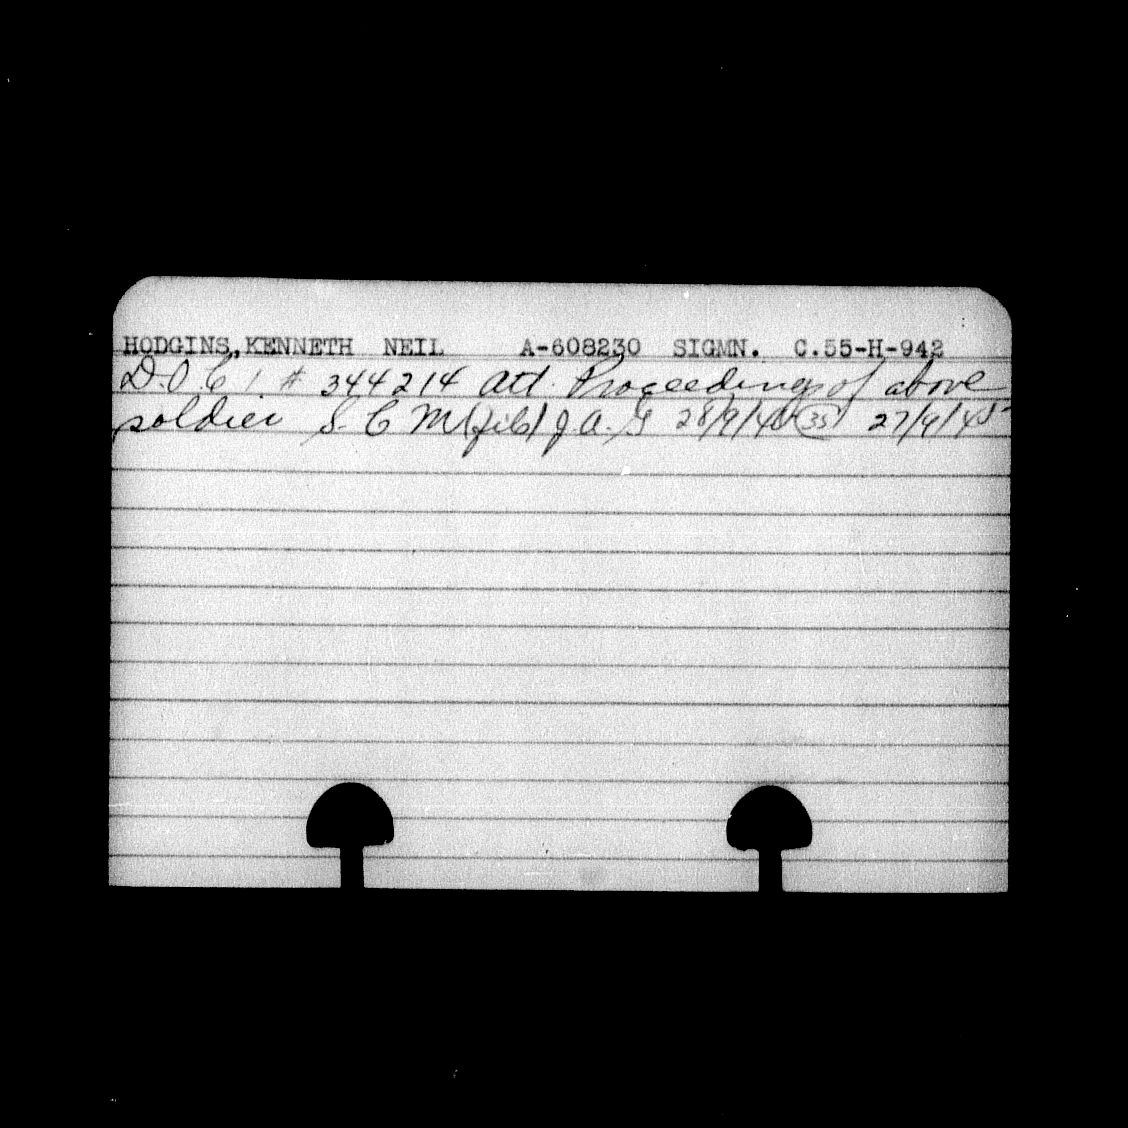 HODGINS, KENNETH NEIL A-608230 SIGMN. C.55-H-942
D.O.C 1 # 344214 att. Proceedings of above
soldier S.C.M (file) J.A.G 28/9/45 (35) 27/9/45